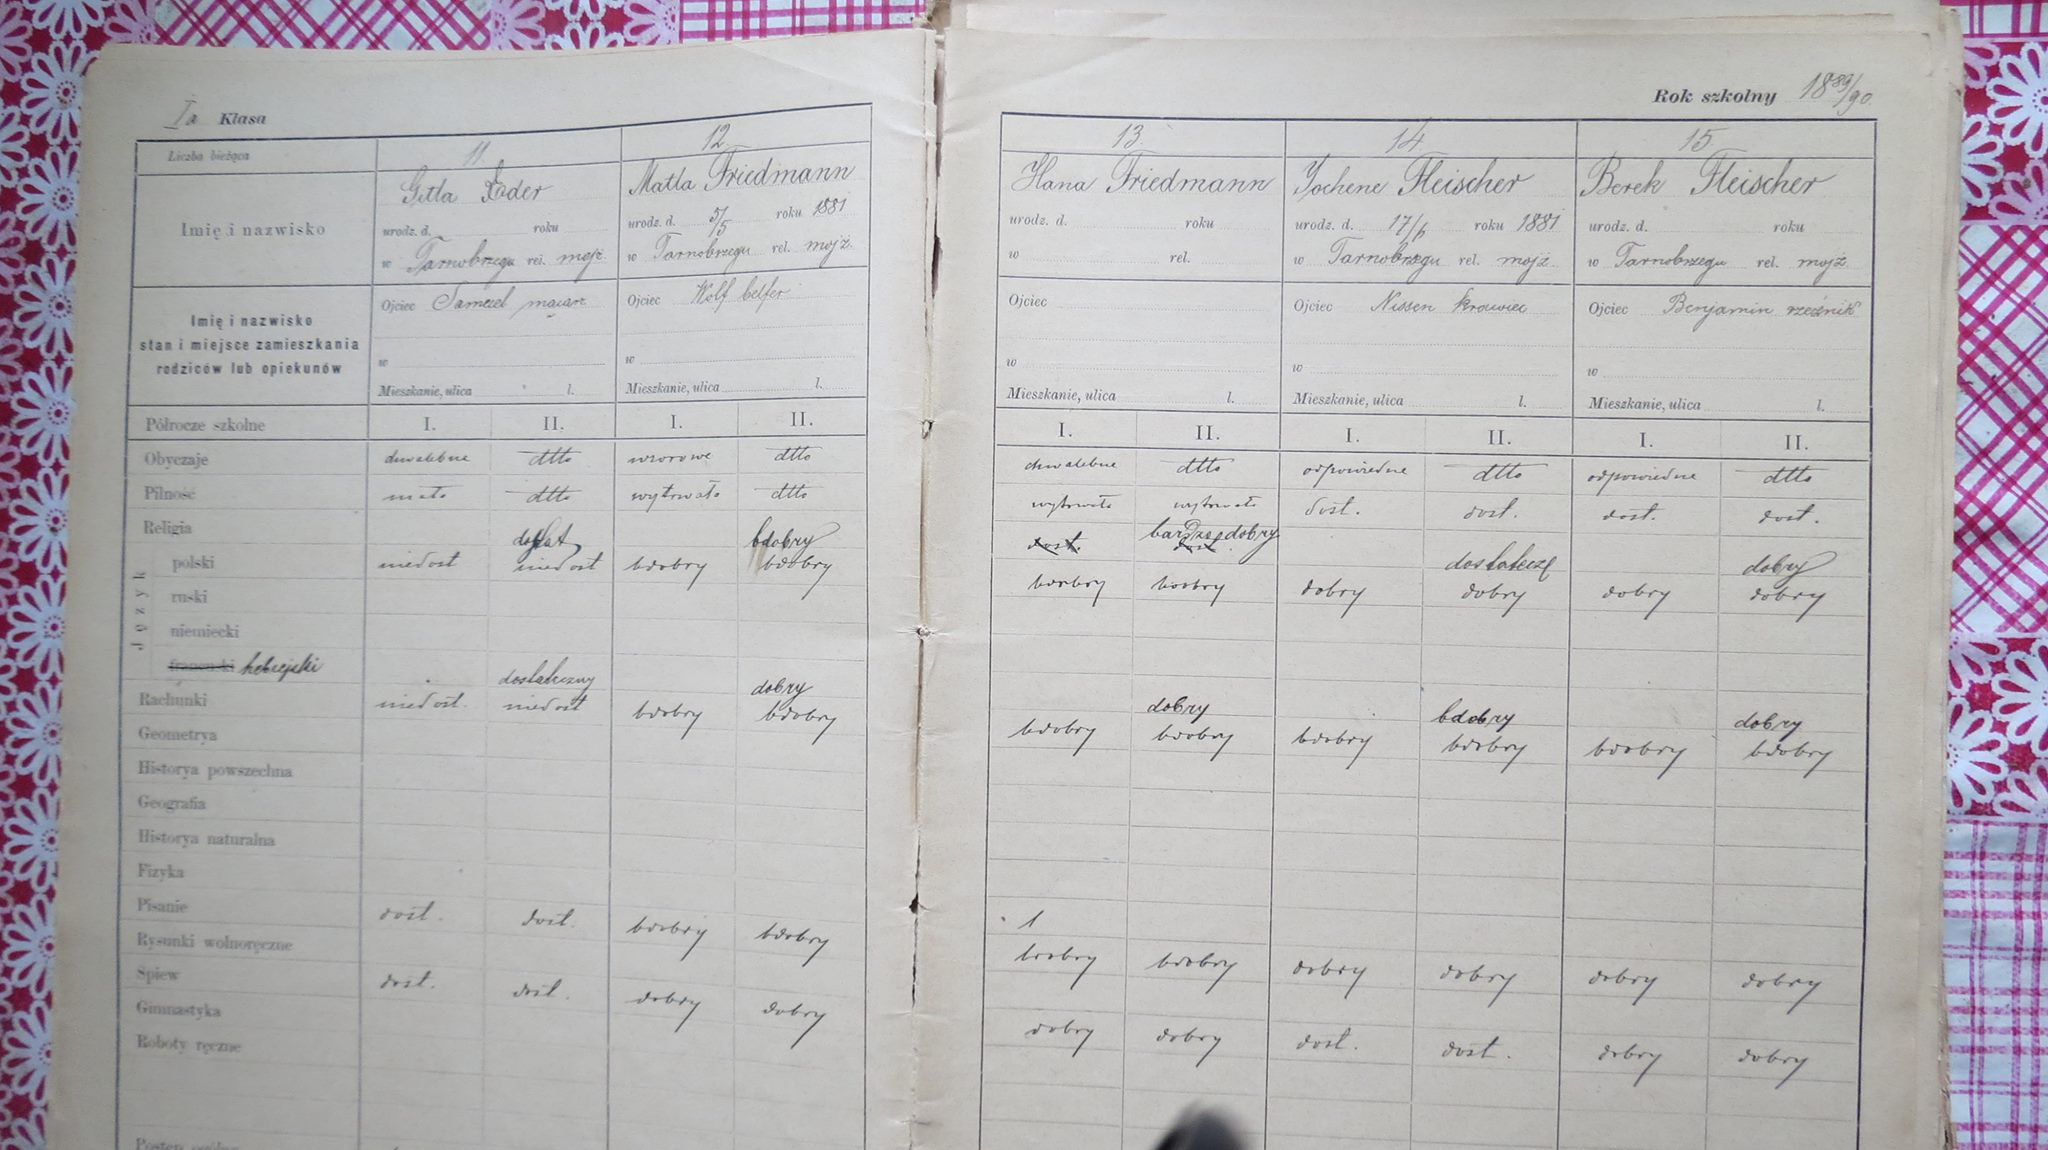 Ia Klasa
Rok szkolny 1889/90
Liczba bieżąca 11. 12. 13. 14. 15.
Imię i nazwisko
Gitla Eder
urodz. d. roku
w Tarnobrzegu rel. mojż.
Matla Friedmann
urodz. d. 5/5 roku 1881
w Tarnobrzegu rel. mojż.
Hana Friedmann
urodz. d. roku
w rel.
Jochene Fleischer
urodz. d. 17/6 roku 1881
w Tarnobrzegu rel. mojż
Berek Fleischer
urodz. d. roku
w Tarnobrzegu rel. mojż
Imię i nazwisko
stan i miejsce zamieszkania
rodziców lub opiekunów
Ojciec Samuel
w
Mieszkanie, ulica l.
Ojciec Wolf belfer
w
Mieszkanie, ulica l.
Ojciec
w
Mieszkanie, ulica l.
Ojciec Nissen krawiec
w
Mieszkanie, ulica l.
Ojciec Benjamin rzeźnik
w
Mieszkanie, ulica l.
Półrocze szkolne I. II. I. II. I. II. I. II. I. II.
Obyczaje chwalebne dtto wzorowe dtto chwalebne dtto odpowiedne dtto odpowiedne dtto
Pilność mała dtto wytrwała dtto wytrwała wytrwała dost. dost. dost. dost.
Religia dostat bdobry dost. bardzo dobry dost. dostatecz dobry
Język
polski niedost niedost bdobry bdobry bdobry bdobry dobry dobry dobry dobry
ruski
niemiecki
francuski hebrejski dostateczny dobry dobry bdobry dobry
Rachunki niedost. niedost bdobry bdobry bdobry bdobry bdobry bdobry bdobry bdobry
Geometrya
Historya powszechna
Geografia
Historya naturalna
Fizyka
Pisanie dost. dost. bdobry bdobry bdobry bdobry dobry dobry dobry dobry
Rysunki wolnoręczne
Śpiew dost. dost. dobry dobry dobry dobry dost. dost. dobry dobry
Gimnastyka
Roboty ręczne
Postęp ogólny